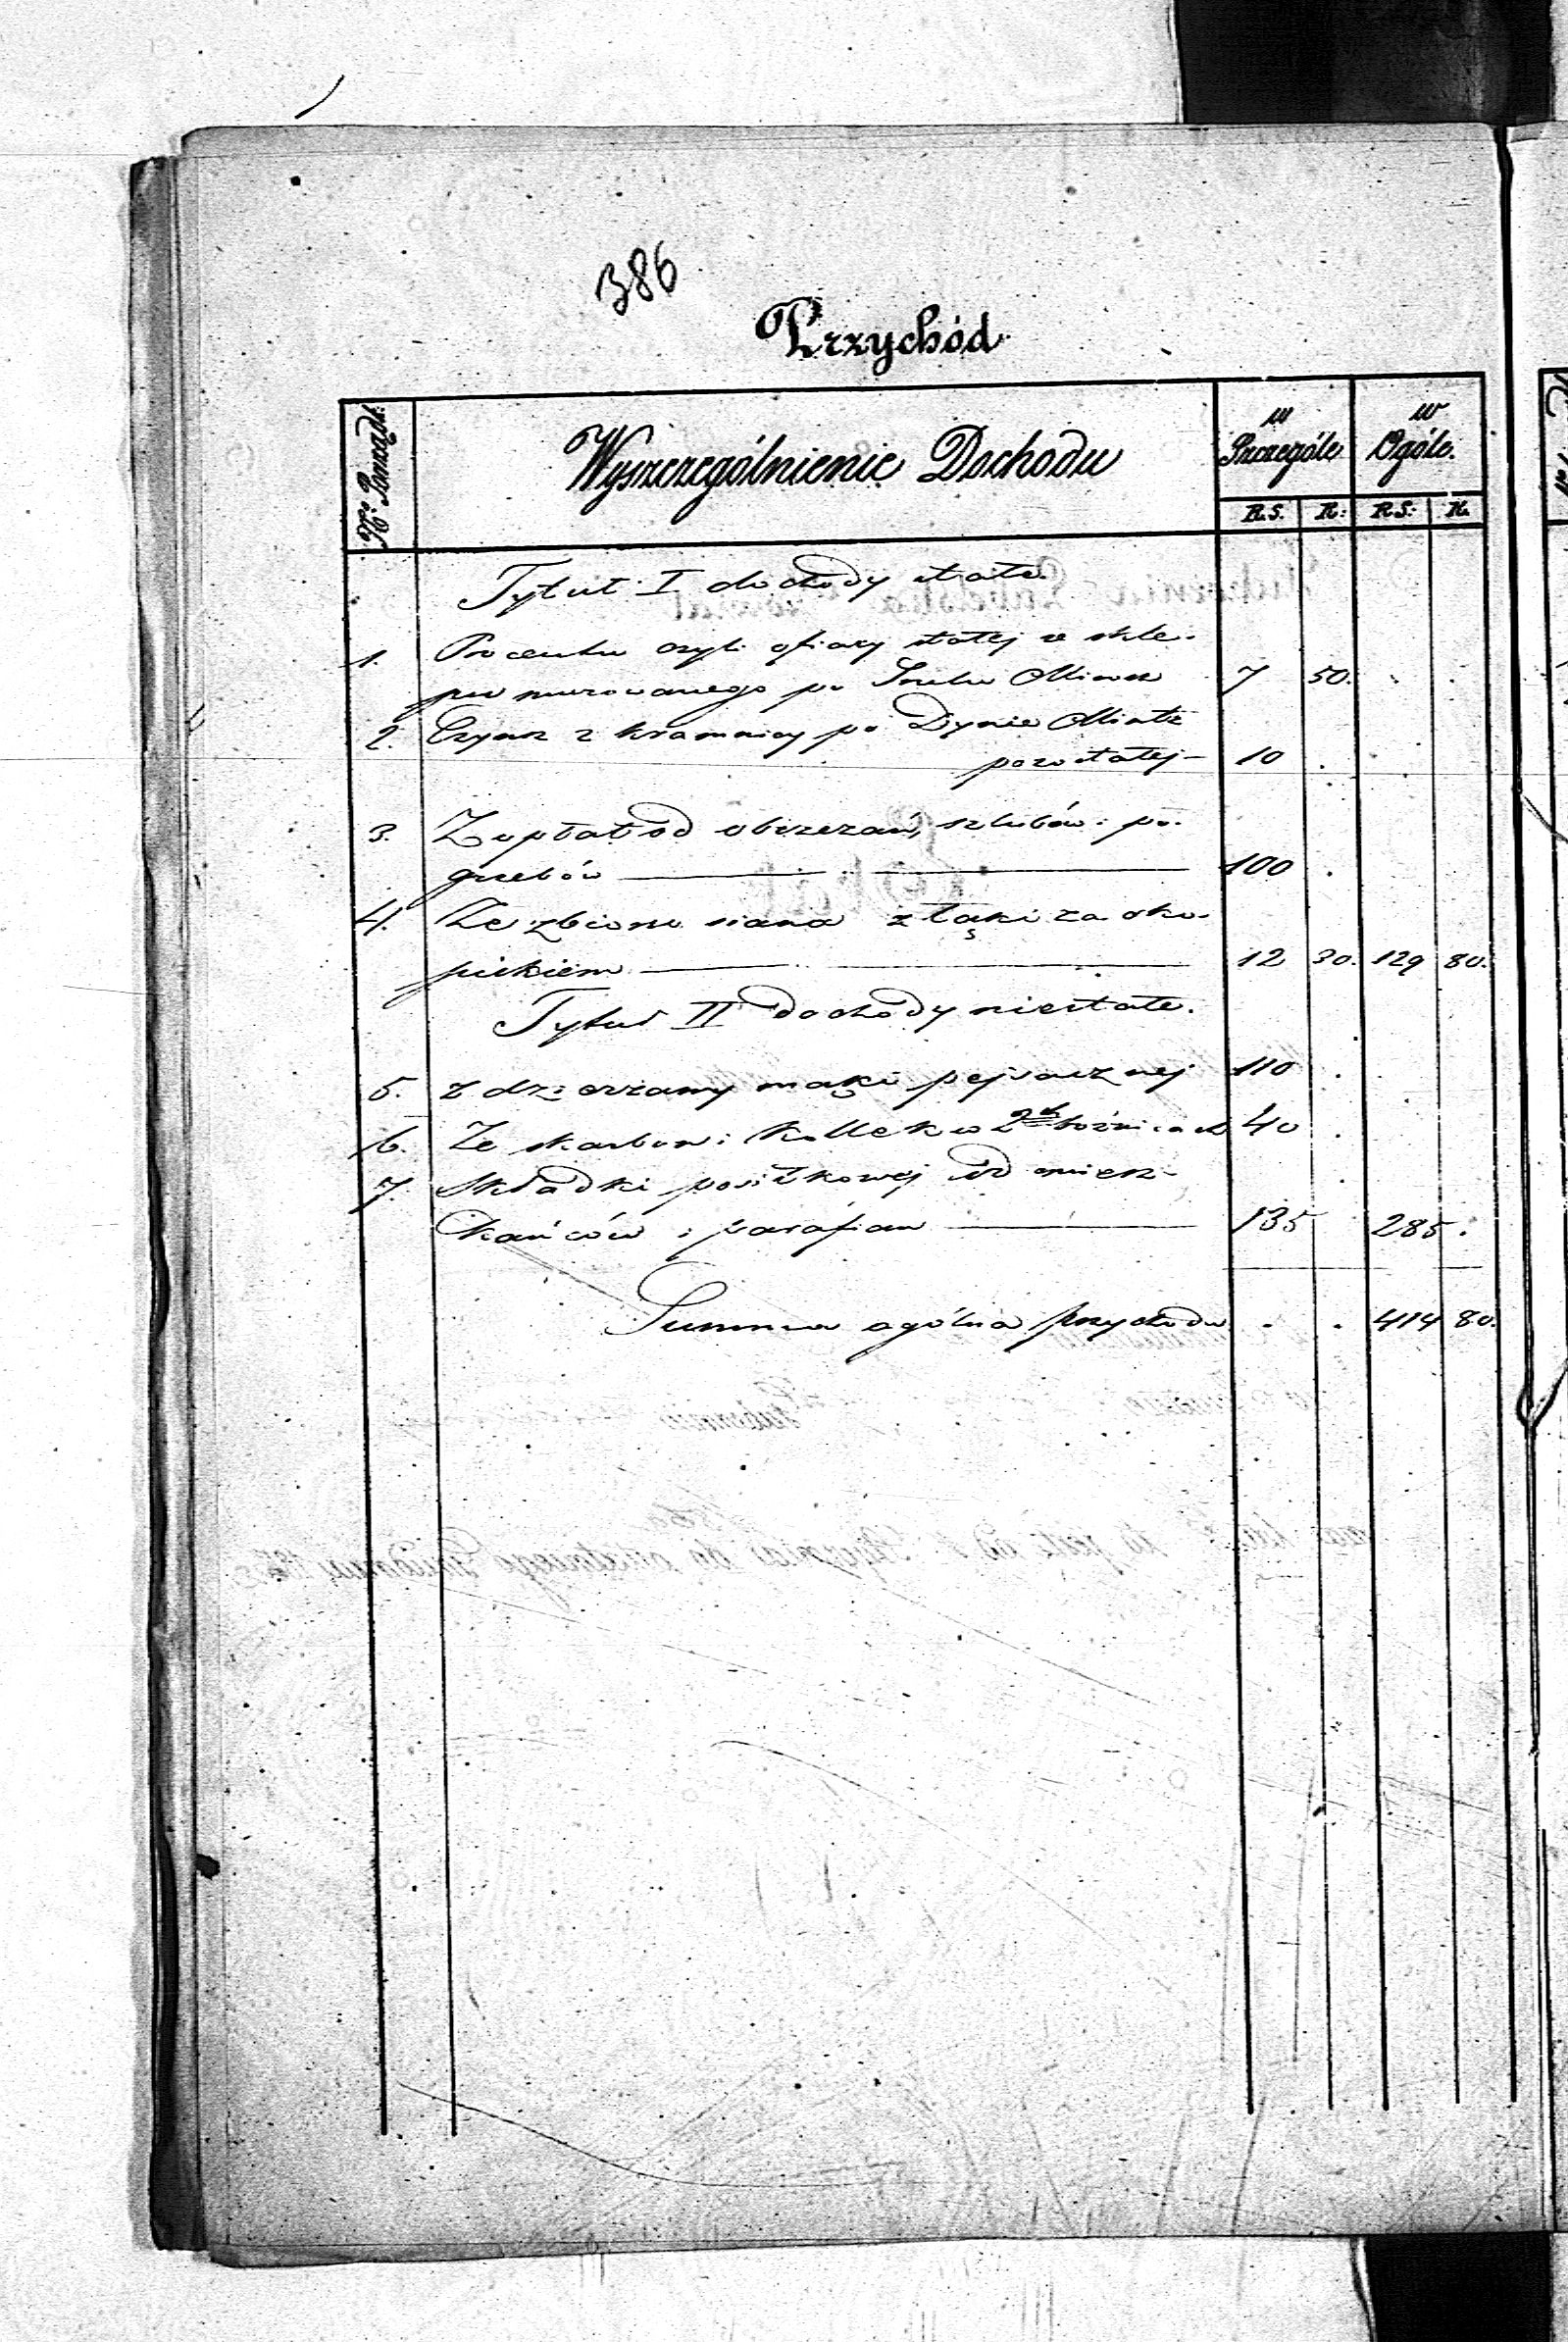 386
Przychód
No. Porządk.
Wyszczególnienie Dochodu
w Szczególe
w Ogóle.
R.S. K: R.S: K.
Tytuł I dochody stałe.
1. Procentu czyli ofiary stałej ze skle-
pu murowanego po 7 50.
2. Czynsz z kramnicy po Dynie
pozostałej – 10 .
3. Z opłat od obrzezań, szlubów i po-
grzebów 100 .
4. Ze zbioru siana z łąki za oko-
piskiem 12 30. 129 80.
Tytuł II dochody niestałe.
5. z dzierżawy mąki pejsacznej 110 .
6. Ze skarbon i kollek w 2ch bóżnicach 40 .
7. Składki posiłkowej od miesz-
kańców i parafian 135 285 .
Summa ogólna przychodu . . 414 80.